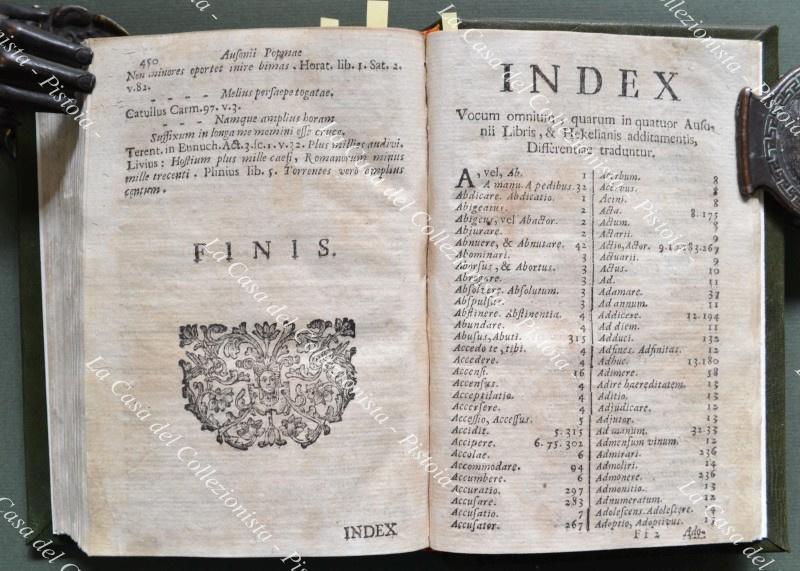 450 Ausonii Popmae
Non minores oportet inire bimas. Horat. lib. 1. Sat. 2.
v.82.
- - - - Melius persaepe togatae.
Catullus Carm. 97. v. 3.
- - - - Namque amplius horam
Suffixum in longa me memini esse cruce.
Terent. in Eunuch. Act. 3. sc. 1. v. 32. Plus millies audivi.
Livius: Hostium plus mille caesi, Romanorum minus
mille trecenti. Plinius lib. 5. Torrentes vero amplius
centum.
FINIS.
INDEX
INDEX
Vocum omnium, quarum in quatuor Auso-
nii Libris, & Hekelianis additamentis,
Differentiae traduntur.
A, vel, Ab. 1
A manu. A pedibus. 32
Abdicare. Abdicatio. 1
Abigeatus. 2
Abigeus, vel Abactor. 2
Abjurare. 2
Abnuere, & Abnutare. 42
Abominari. 3
Aborsus, & Abortus. 3
Abrogare. 3
Absolvere. Absolutum. 3
Abspulsae. 3
Abstinere. Abstinentia. 4
Abundare. 4
Abusus, Abuti. 315
Accedo te, tibi. 4
Accedere. 4
Accensi. 16
Accensus. 4
Acceptilatio. 4
Accersere. 4
Accessio, Accessus. 5
Accidit. 5. 315
Accipere. 6. 75. 302
Accolae. 6
Accommodare. 94
Accumbere. 6
Accuratio. 297
Accusare. 283
Accusatio. 7
Accusator. 267
Acerbum. 8
Acervus. 8
Acini. 8
Acta. 8. 175
Actum.
Actarii. 9
Actio, Actor. 9. 12. 283. 267
Actuarii. 9
Actus. 10
Ad. 11
Adamare. 37
Ad annum. 11
Addicere. 12. 194
Ad diem. 11
Adduci. 132
Adfines. Adfinitas. 12
Adhuc. 13. 180
Adimere. 58
Adire haereditatem. 13
Aditio. 13
Adjudicare. 12
Adjutor. 13
Ad manum. 32. 33
Admensum vinum. 12
Admirari. 236
Admoliri. 14
Admonere. 236
Admonitio. 13
Adnumeratum. 12
Adolescens. Adolescere.
Adoptio, Adoptivus.
Ff 2 Ado-
La Casa del Collezionista - Pistoia -